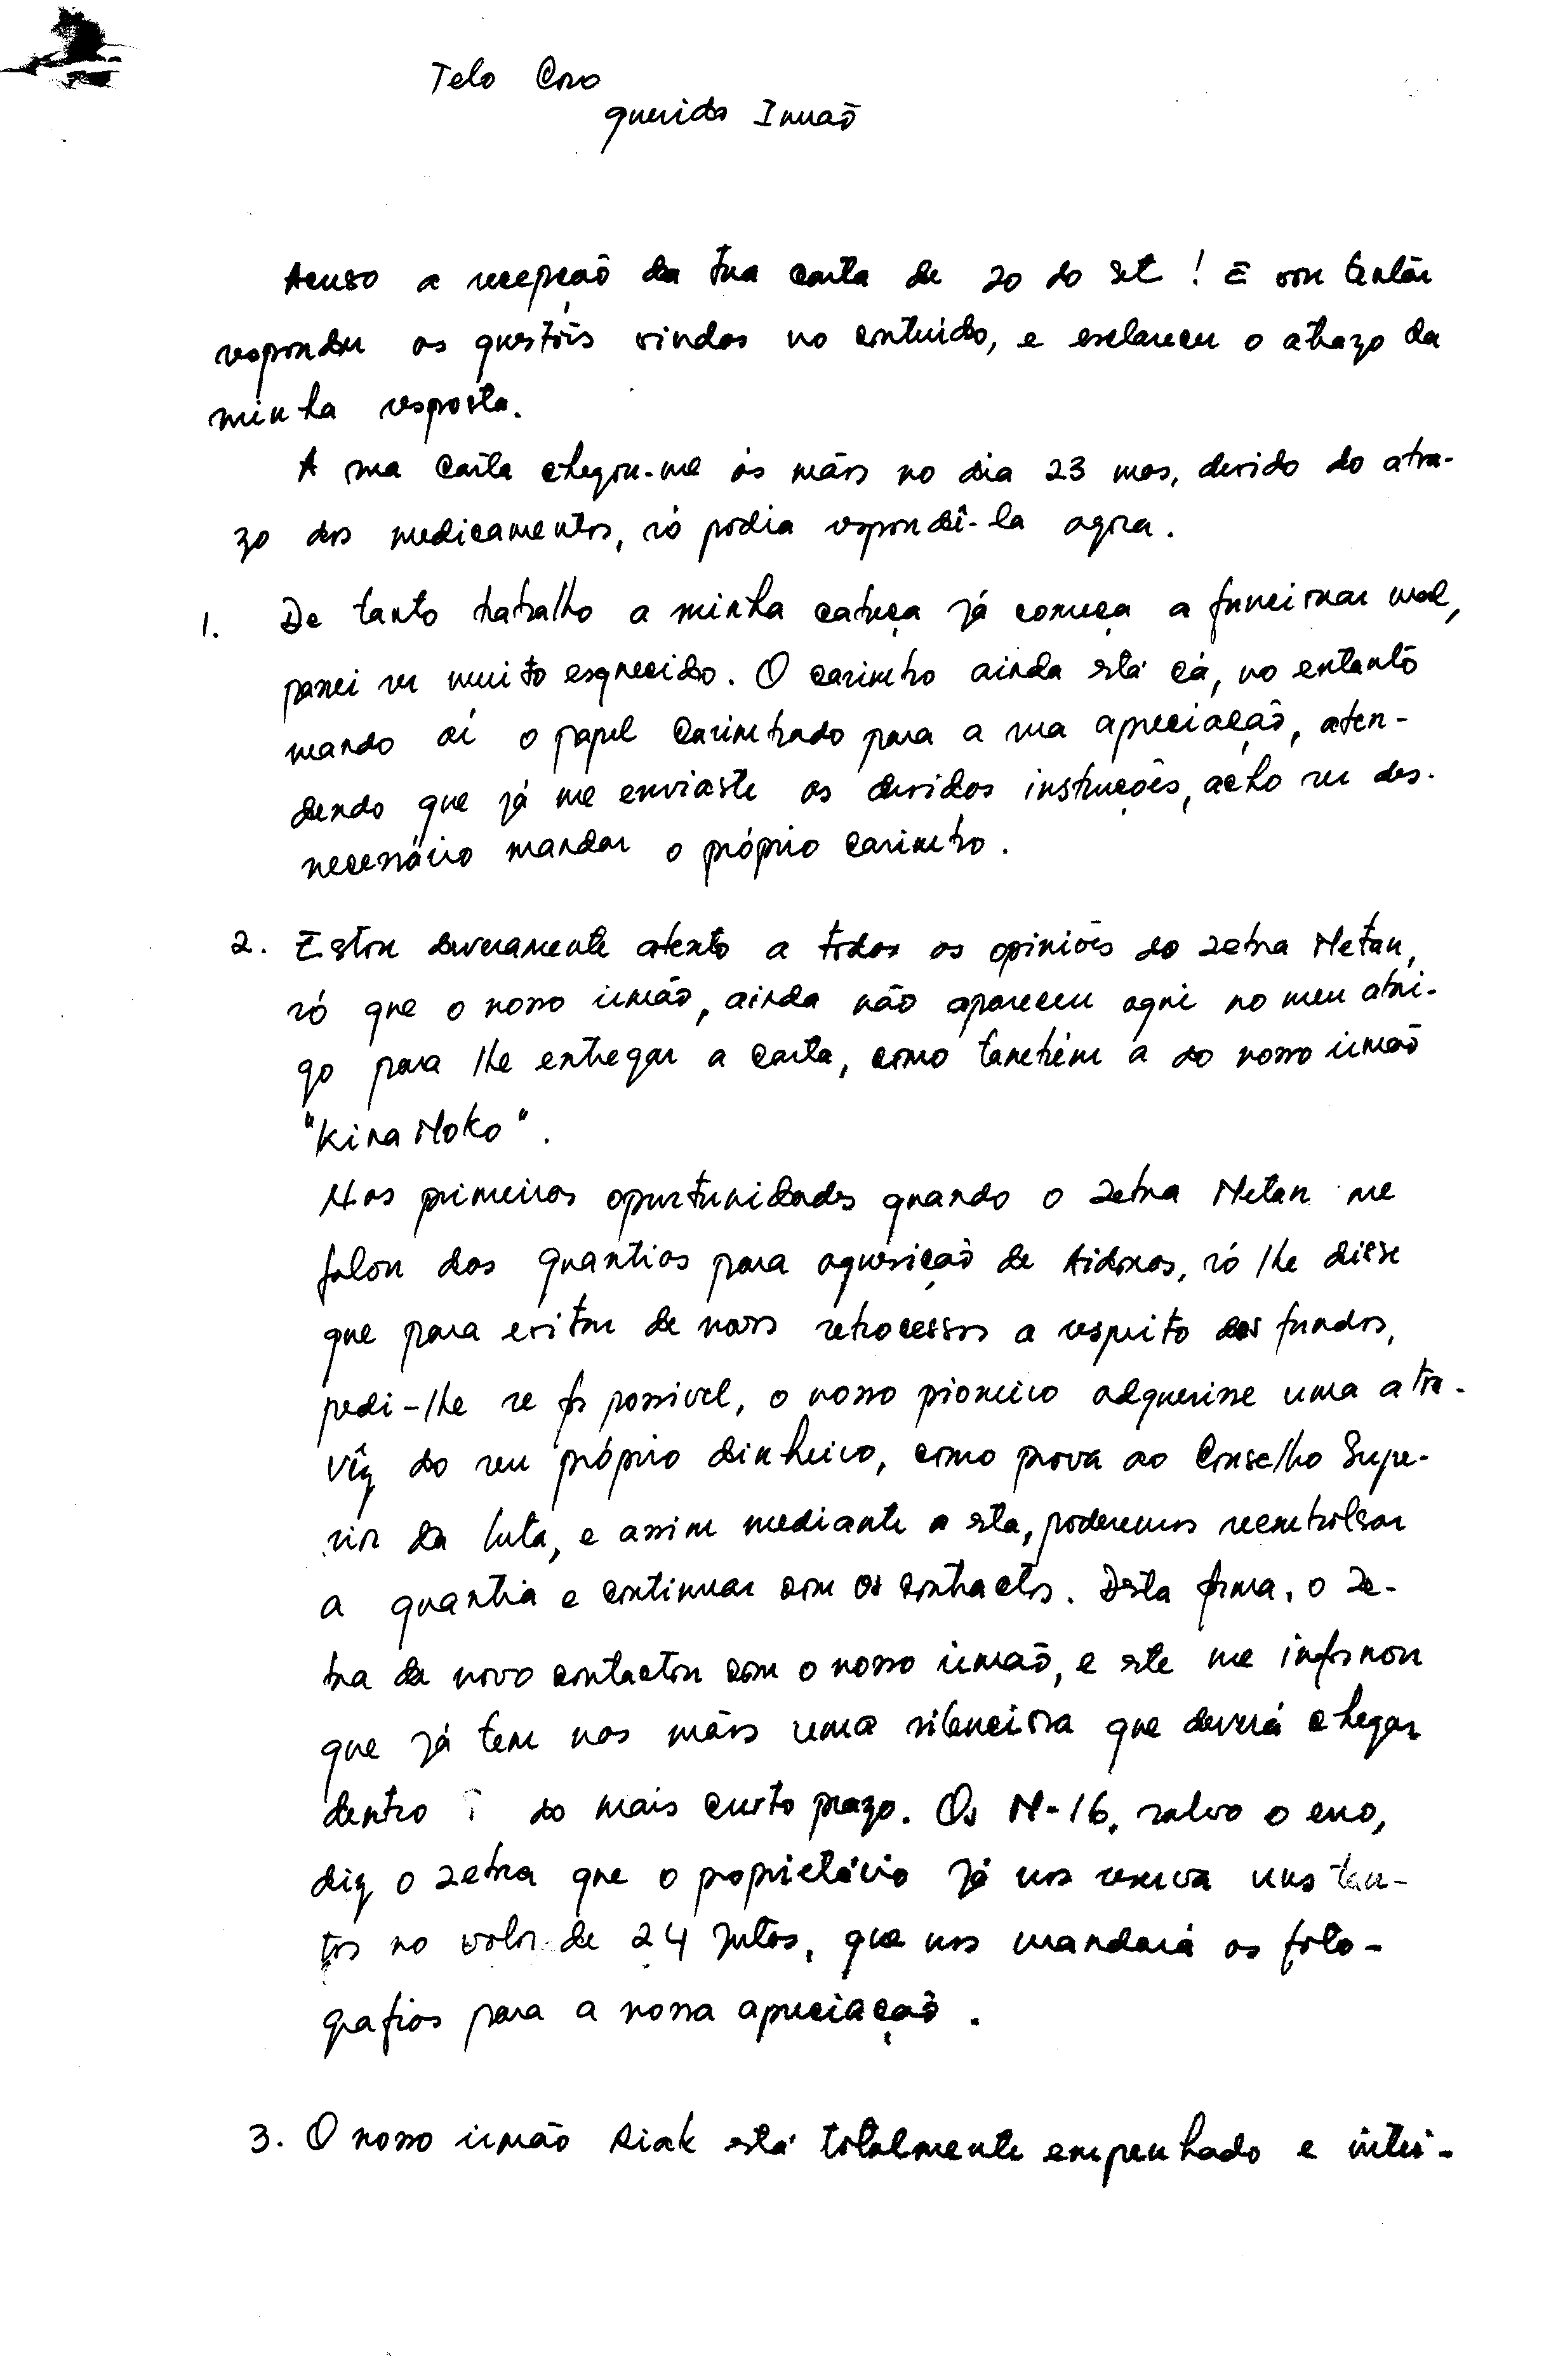 Telo Cono
querido Irmão
Acuso a recepção da tua carta de 20 do set! E vou tentár
responder as questõis vindas no contuído, e esclarecer o atrazo da
minha resposta.
A sua carta chegou-me ás mãos no dia 23 mas, devido do atra-
zo dos medicamentos, só podia respondê-la agora.
1. De tanto trabalho a minha cabeça já começa a funcionar mal,
passei ser muito esquecido. O carimbo ainda está cá, no entanto
mando aí o papel carimbado para a sua apreciação, aten-
dendo que já me enviaste as devidas instruções, acho ser des-
necessário mandar o próprio carimbo.
2. Estou deveramente atento a todas as opiniões do zebra Metan,
só que o nosso irmão, ainda não apareceu aqui no meu abri-
go para lhe entregar a carta, como também a do nosso irmão
"Kina Moko".
Nas primeiras oportunidades quando o zebra Metan me
falou das quantias para aquesição de Aidonas, só lhe disse
que para evitar de novos retrocessos a respeito dos fundos,
pedi-lhe se fôr possivel, o nosso pioneiro adquerisse uma atra-
vêz do seu próprio dinheiro, como prova ao Conselho Supe-
rior da luta, e assim mediante a esta, poderemos reembolsar
a quantia e continuar com os contractos. Desta forma, o Ze-
bra de novo contactou com o nosso irmão, e este me informou
que já tem nas mãos uma silenciosa que deverá chegar
dentro do mais curto prazo. Os M-16, salvo o erro,
diz o zebra que o proprietário já nos reserva uns tan-
tos no valor de 24 jutos, que nos mandará as foto-
grafias para a nossa apreciação.
3. O nosso irmão Riak está totalmente empenhado e intei-